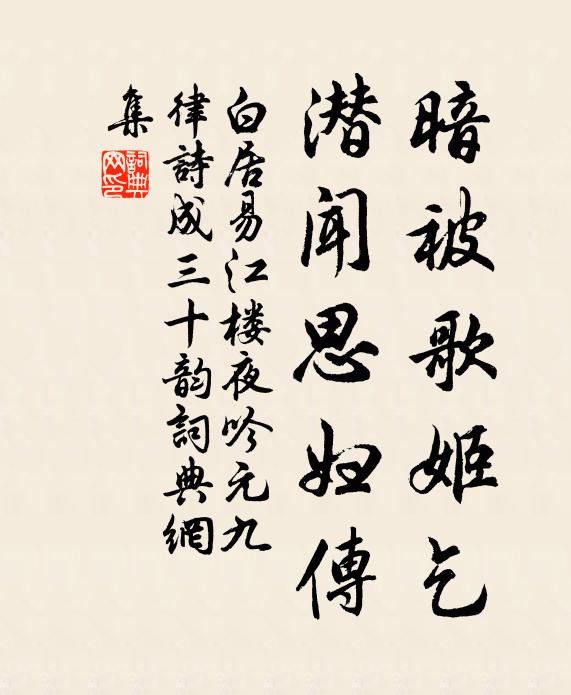 暗被歌姬乞
潜闻思妇傳
白居易江楼夜吟元九
律詩成三十韵詞典網
集
詞典
网印